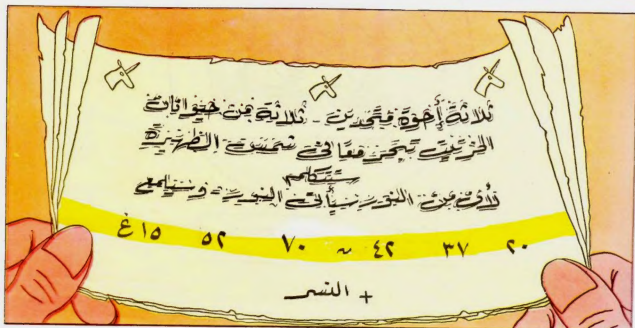 ثلاثة أخوة متحدين - ثلاثة من حيوانات
الخرتيت تبحر معا في شمس الظهيرة
ستتكلم
وأن من النور سيأتي النور وسيلمع
٢٠ ٣٧ ٤٢ ~ ٧٠ ٥٢ ١٥ غ
+ النسر